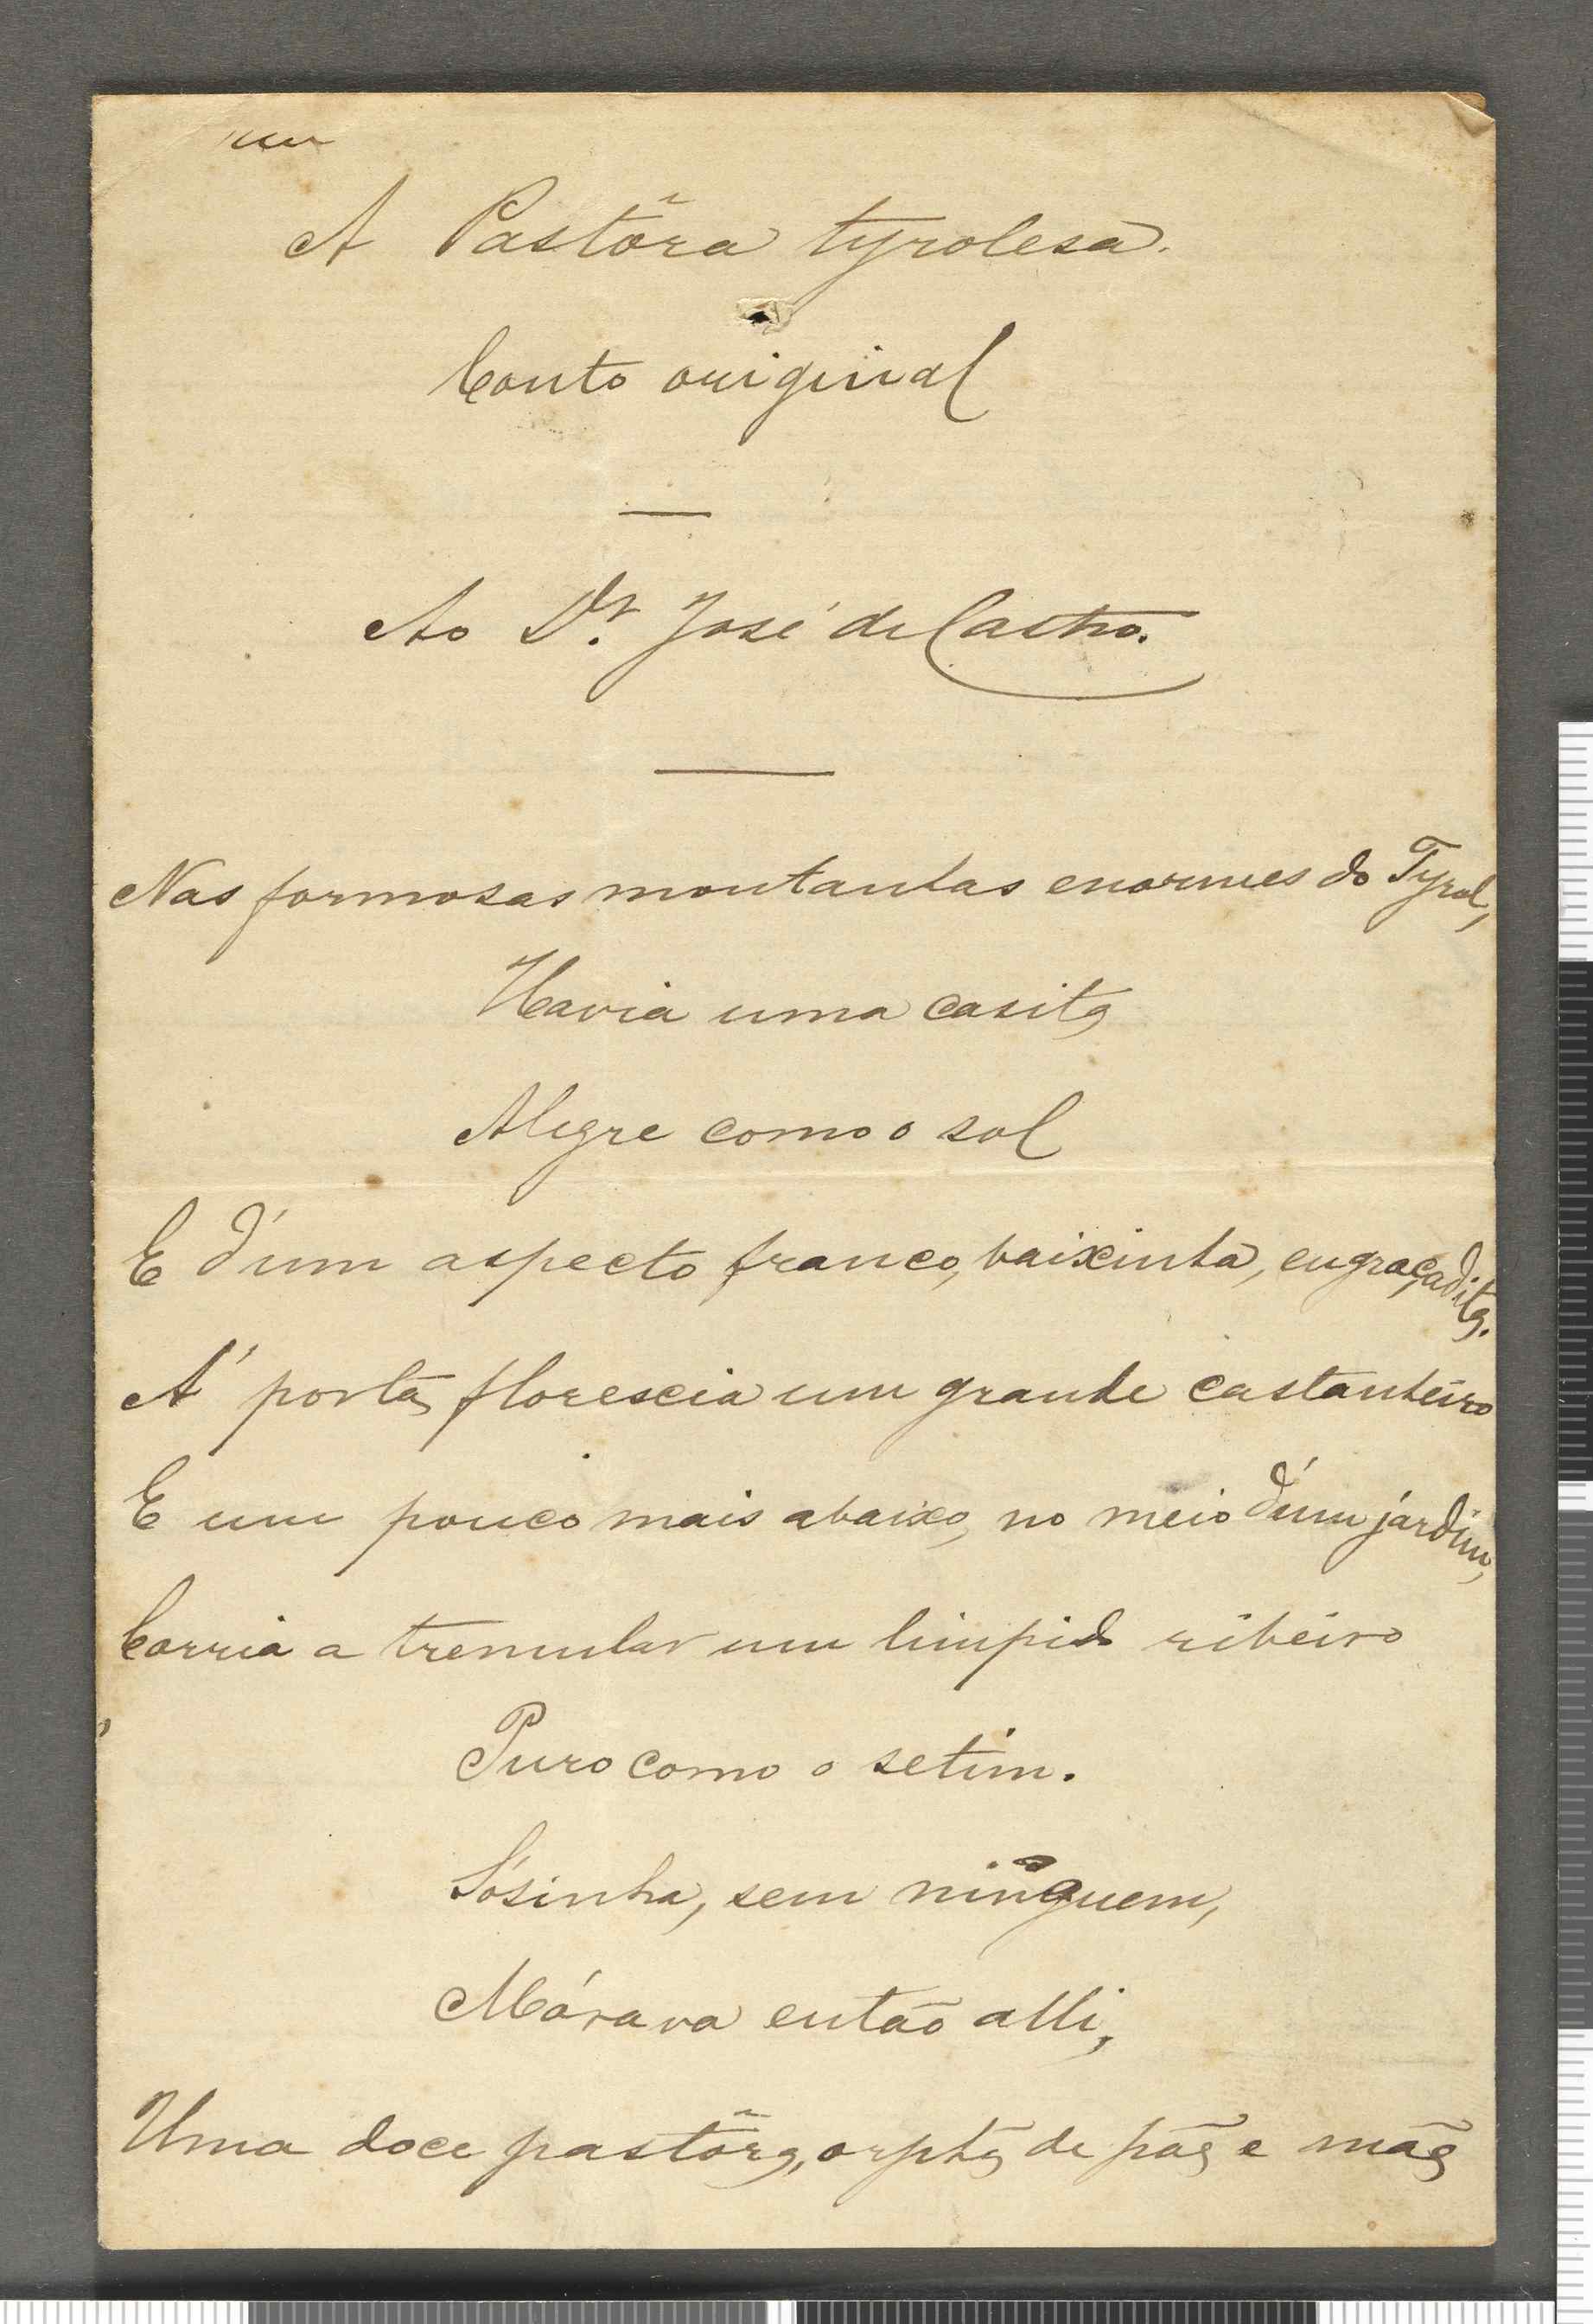 A Pastôra tyrolesa.
Conto original
Ao Dr. José de Castro.
Nas formosas montanhas enormes do Tyrol,
Havia uma casita
Alegre como o sol
E d'um aspecto franco, baixinha, engraçadita.
A' porta, florescia um grande castanheiro
E um pouco mais abaixo, no meio d'um jardim,
Corria a tremular um limpido ribeiro
Puro como o setim.
Sósinha, sem ninguem,
Mórava então alli,
Uma doce pastôra, orphã de pãe e mãe